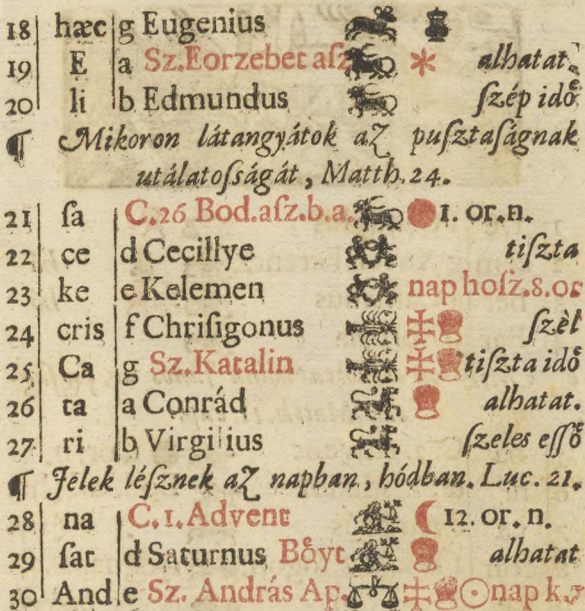 18 hæc g Eugenius
19 E a Sz. Eorzebet aſz alhatat.
20 li b Edmundus ſzép idoͤ
¶ Mikoron látangyátok az puſztaſágnak
utálatoſságát, Matth. 24.
21 ſa C. 26 Bod. aſz. b. a. 1. or. n.
22 ce d Cecillye tiſzta
23 ke e Kelemen nap hoſz. 8. or
24 cris f Chriſigonus ſzèl
25 Ca g Sz. Katalin tiſzta idoͤ
26 ta a Conrád alhatat.
27 ri b Virgilius ſzeles eſſoͤ
¶ Jelek léſznek az napban, hódban. Luc. 21.
28 na C. 1. Advent 12. or. n.
29 ſat d Saturnus Boͤyt alhatat
30 And e Sz. András Ap. nap k.